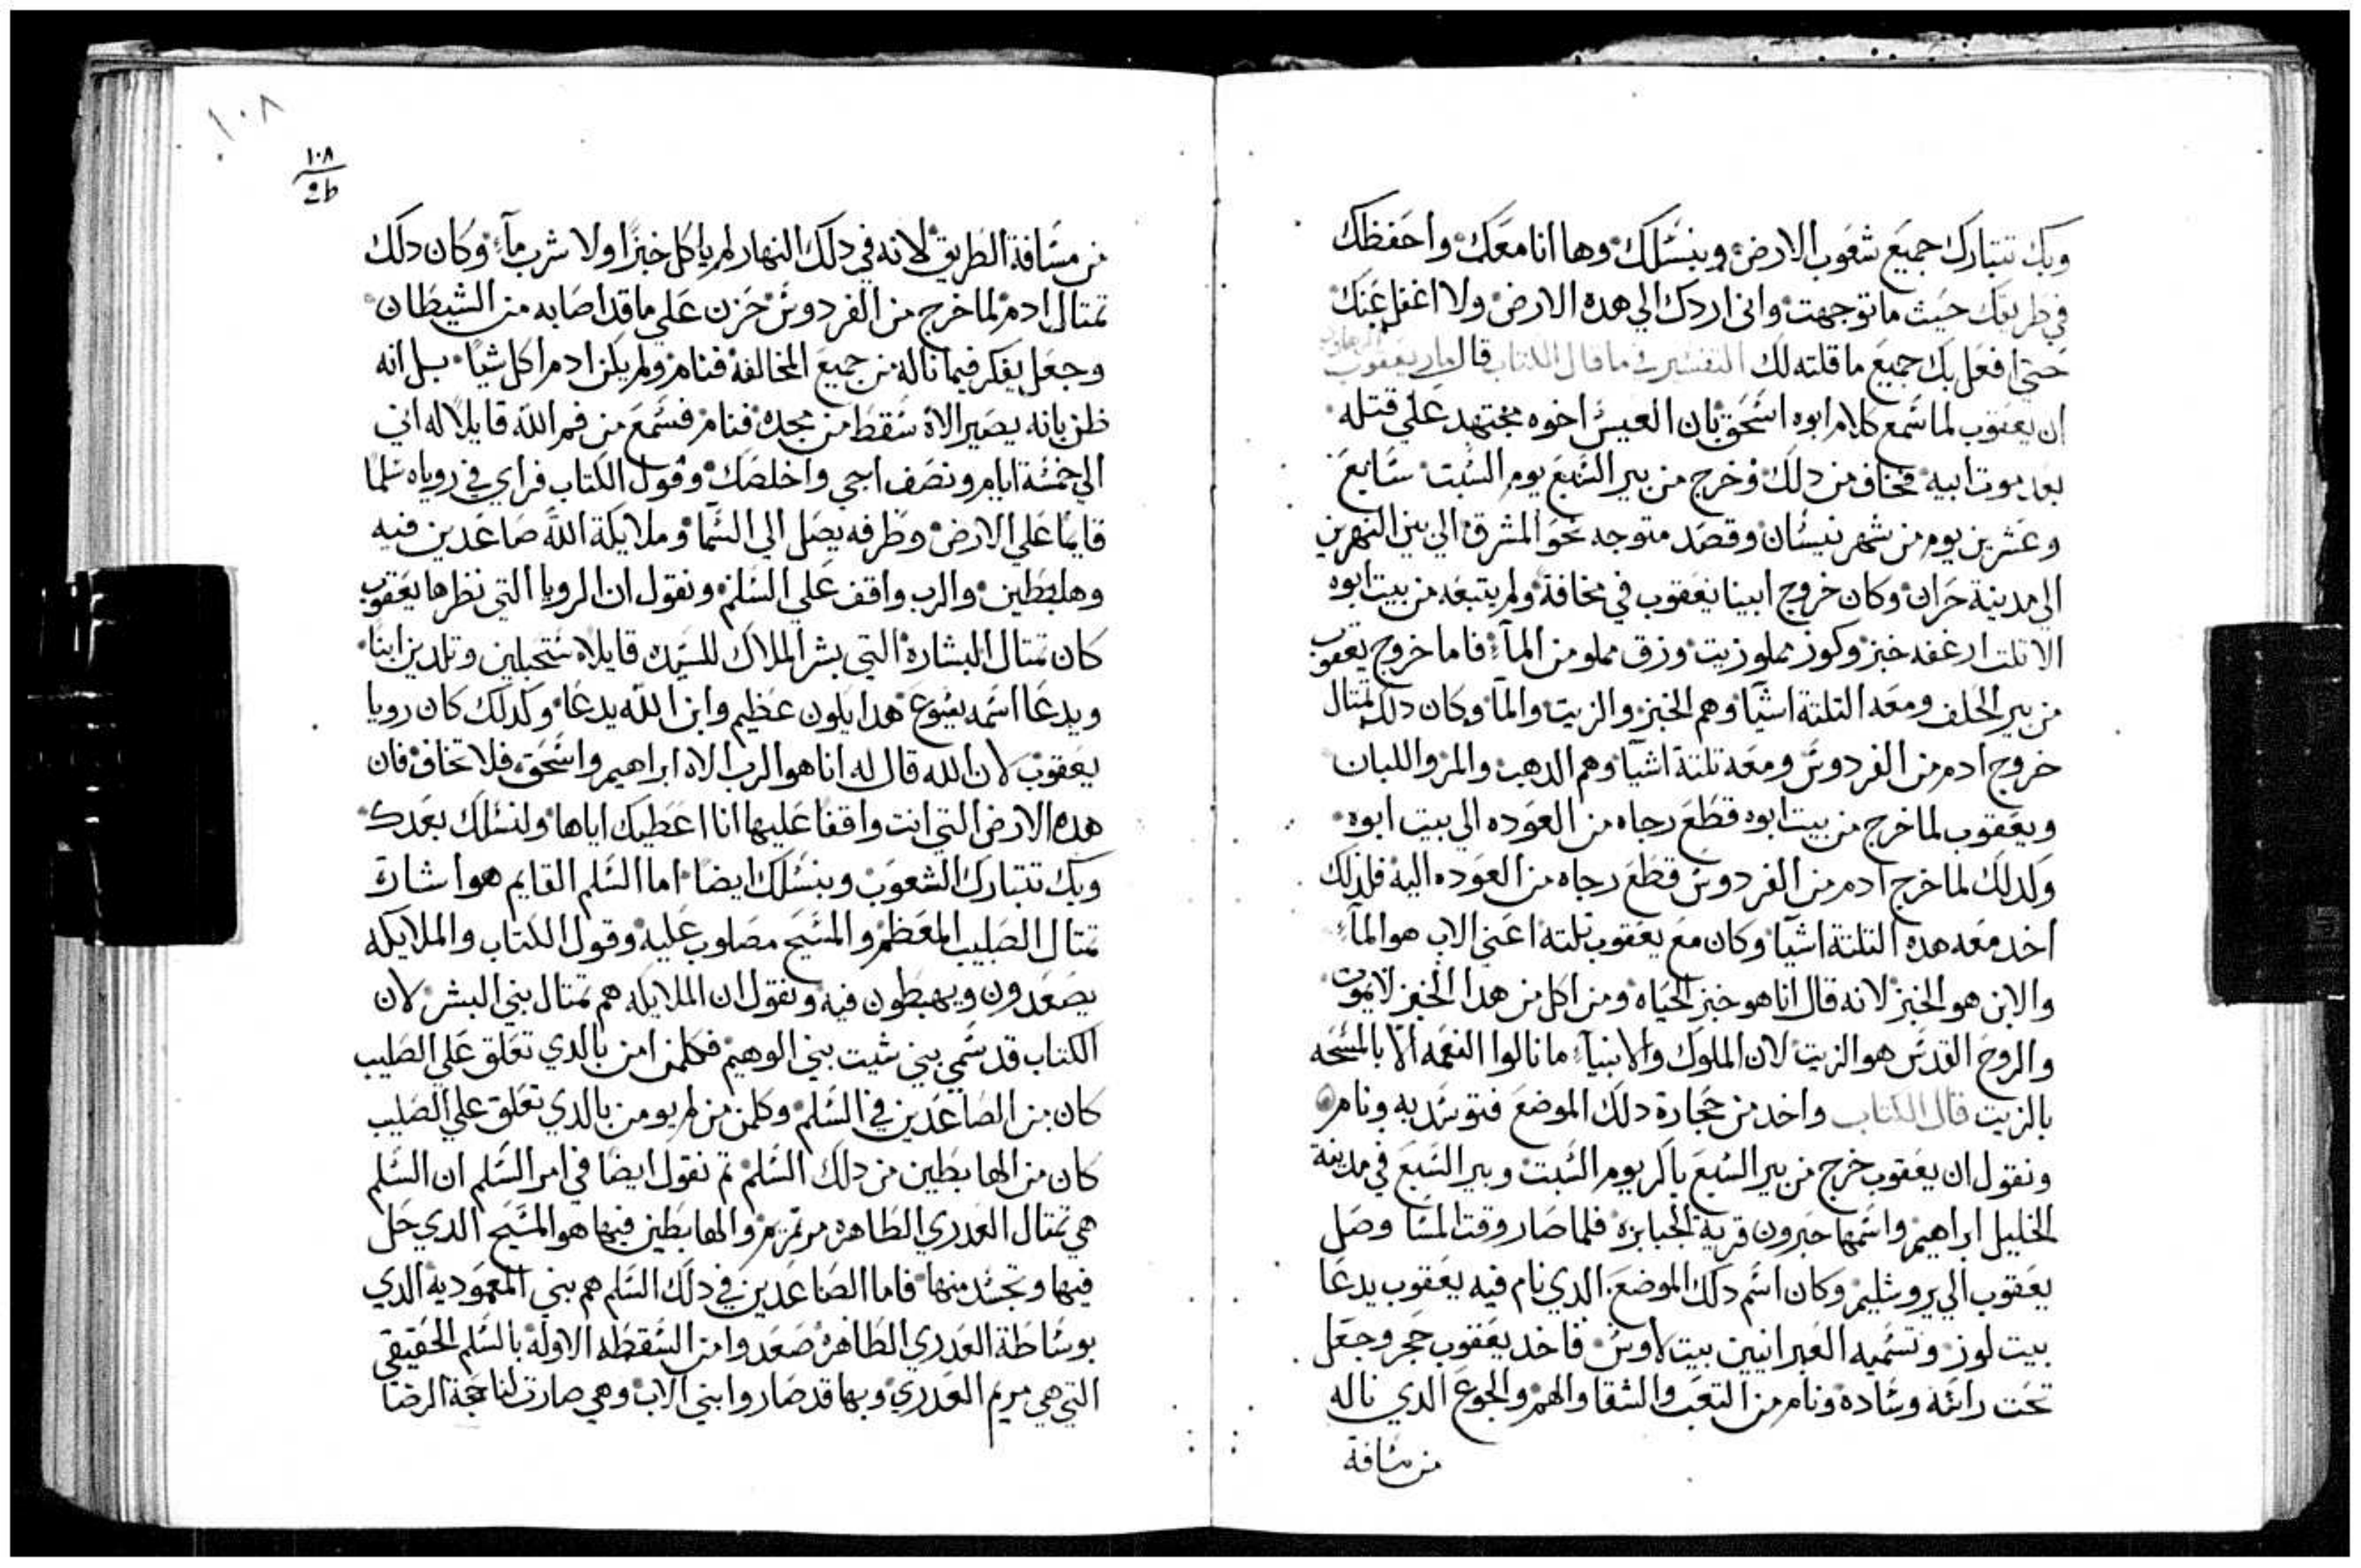 وبك تتبارك جميع شعوب الارض وبنسلك وها انا معك واحفظك
في طريقك حيث ما توجهت واني اردك الي هده الارض ولا اغفل عنك
حتي افعل بك جميع ما قلته لك التفسير ما قال الكتاب قال يعقوب
ان يعقوب لما سمع كلام ابوه اسحق بان العيس اخوه مجتهد علي قتله
بعد موت ابيه فخاف من دلك وخرج من بير السبع يوم السبت سابع
وعشرين يوم من شهر نيسان وقصد متوجه نحو المشرق الي بين النهرين
الي مدينة حران وكان خروج ابينا يعقوب في مخافة ولم يتبعه من بيت ابوه
الا تلت ارغفه خبز وكوز مملو زيت وزق مملو من المآء فاما خروج يعقوب
من بير الحلف ومعه التلتة اشيا وهم الخبز والزيت والمآ وكان دلك تمتال
خروج ادم من الفردوس ومعه تلتة اشيا وهم الدهب والمر واللبان
ويعقوب لما خرج من بيت ابوه قطع رجاه من العوده الي بيت ابوه
وكدلك لما خرج ادم من الفردوس قطع رجاه من العوده اليه فلدلك
اخد معه هده التلتة اشيا وكان مع يعقوب تلته اعني الاب هو المآء
والابن هو الخبز لانه قال انا هو خبز الحياه ومن اكل من هدا الخبز لا يموت
والروح القدس هو الزيت لان الملوك والانبيآء ما نالوا النعمه الا بالمسحه
بالزيت قال الكتاب واخد من حجارة دلك الموضع فتوسد به ونام
ونقول ان يعقوب خرج من بير السبع باكر يوم السبت وبير السبع في مدينة
الخليل ابراهيم واسمها حبرون قرية الجبابرة فلما صار وقت المسا وصل
يعقوب الي يروشليم وكان اسم دلك الموضع الدي نام فيه يعقوب يدعا
بيت لوز وتسميه العبرانيين بيت لاوس فاخد يعقوب حجر وجعل
تحت راسه وساده ونام من التعب والشقا والهم والجوع الدي ناله
من مسافة
١٠٨
١٠٨
من مسافة الطريق لانه في دلك النهار لم ياكل خبزا ولا شرب مآء وكان دلك
تمتال ادم لما خرج من الفردوس حزن علي ما قد اصابه من الشيطان
وجعل يفكر فيما ناله من جميع المخالفة فنام ولم يكن ادم اكل شيا بل انه
ظن بانه يصير الاه سقط من مجده فنام فسمع من فم الله قايلا له اني
الي خمسة ايام ونصف اجي واخلصك وقول الكتاب فراي في روياه سلما
قايما علي الارض وطرفه يصل الي السما وملايكة الله صاعدين فيه
وهابطين والرب واقف علي السلم ونقول ان الرويا التي نظرها يعقوب
كان تمتال البشارة التي بشر الملاك للسيده قايلا ستحبلين وتلدين ابنا
ويدعا اسمه يسوع هدا يكون عظيم وابن الله يدعا وكدلك كان رويا
يعقوب لان الله قال له انا هو الرب الاه ابراهيم واسحق فلا تخاف فان
هده الارض التي انت واقفا عليها انا اعطيك اياها ولنسلك بعدك
وبك تتبارك الشعوب وبنسلك ايضا اما السلم القايم هو اشارة
تمتال الصليب المعظم والمسيح مصلوب عليه وقول الكتاب والملايكه
يصعدون ويهبطون فيه ونقول ان الملايكه هم تمتال بني البشر لان
الكتاب قد سمي بني شيت بني الوهيم فكلمن امن بالدي تعلق علي الصليب
كان من الصاعدين في السلم وكلمن من لم يومن بالدي تعلق علي الصليب
كان من الهابطين من دلك السلم تم نقول ايضا في امر السلم ان السلم
هي تمتال العدري الطاهرة مرتمريم والهابطين فيها هو المسيح الدي حل
فيها وتجسد منها فاما الصاعدين في دلك السلم هم بني المعموديه الدي
بوساطة العدري الطاهرة صعدوا من السقطه الاولة بالسلم الحقيقي
التي هي مريم العدري وبها قد صاروا بني الاب وهي صارت لنا الرضا